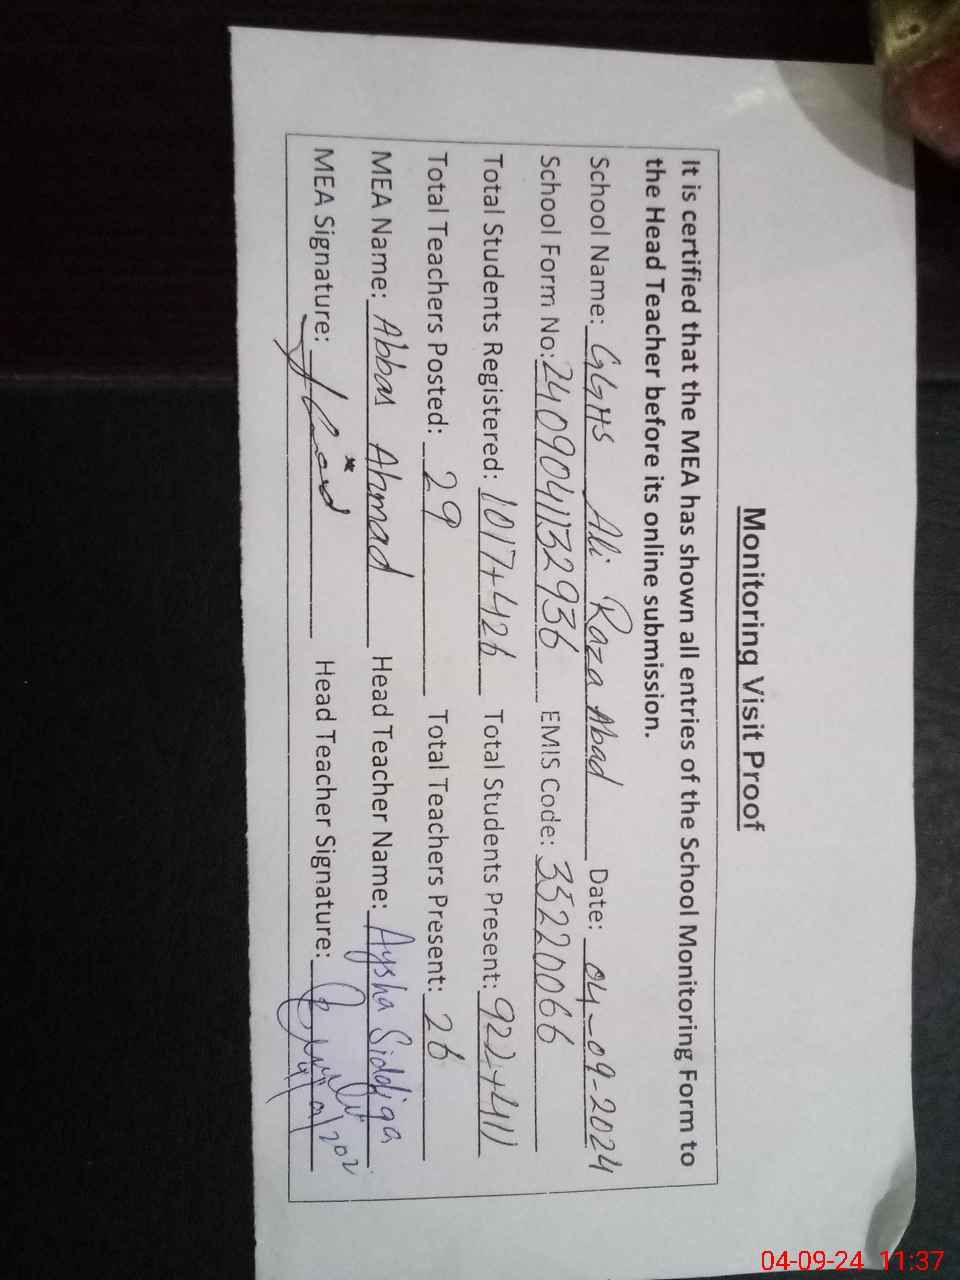 Monitoring Visit Proof
It is certified that the MEA has shown all entries of the School Monitoring Form to
the Head Teacher before its online submission.
School Name: GGHS Ali Raza Abad Date: 04-09-2024
School Form No: 2409041132936 EMIS Code: 35220066
Total Students Registered: 1017+426 Total Students Present: 922+411
Total Teachers Posted: 29 Total Teachers Present: 26
MEA Name: Abbas Ahmad Head Teacher Name: Aysha Siddiqa
MEA Signature: Head Teacher Signature:
04-09-24 11:37